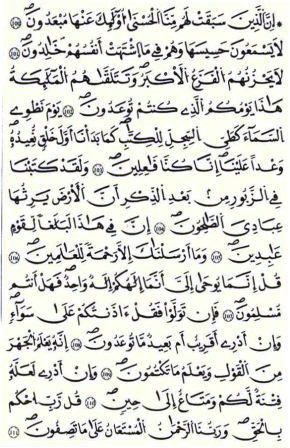 ۞ إِنَّ اَلذِينَ سَبَقَتْ لَهُم مِّنَّا اَلْحُسْنَىٰ أُوْلَٰٓئِكَ عَنْهَا مُبْعَدُونَ ١٠٠
لَا يَسْمَعُونَ حَسِيسَهَا وَهُمْ فِي مَا اَشْتَهَتَ اَنفُسُهُمْ خَٰلِدُونَ ١٠١
لَا يَحْزُنُهُمُ اُلْفَزَعُ اُلَاكْبَرُ وَتَتَلَقَّىٰهُمُ اُلْمَلَٰٓئِكَةُ
هَٰذَا يَوْمُكُمُ اُلذِي كُنتُمْ تُوعَدُونَ ١٠٢ يَوْمَ نَطْوِي
اِلسَّمَآءَ كَطَيِّ اِلسِّجِلِّ لِلْكِتَٰبِ كَمَا بَدَأْنَآ أَوَّلَ خَلْقٍ نُّعِيدُهُۥ
وَعْداً عَلَيْنَآ إِنَّا كُنَّا فَٰعِلِينَ ١٠٣ وَلَقَدْ كَتَبْنَا
فِي اِلزَّبُورِ مِنۢ بَعْدِ اِلذِّكْرِ أَنَّ اَلَارْضَ يَرِثُهَا
عِبَادِيَ اَلصَّٰلِحُونَ ١٠٤ إِنَّ فِي هَٰذَا لَبَلَٰغاً لِّقَوْمٍ
عَٰبِدِينَ ١٠٥ وَمَآ أَرْسَلْنَٰكَ إِلَّا رَحْمَةً لِّلْعَٰلَمِينَ ١٠٦
قُلِ اِنَّمَا يُوحَىٰٓ إِلَيَّ أَنَّمَآ إِلَٰهُكُمُۥٓ إِلَٰهٌ وَٰحِدٌ فَهَلَ اَنتُم
مُّسْلِمُونَ ١٠٧ فَإِن تَوَلَّوْاْ فَقُلَ اٰذَنتُكُمْ عَلَىٰ سَوَآءٍ
وَإِنَ اَدْرِيٓ أَقَرِيبٌ اَم بَعِيدٌ مَّا تُوعَدُونَ ١٠٨ إِنَّهُۥ يَعْلَمُ اُلْجَهْرَ
مِنَ اَلْقَوْلِ وَيَعْلَمُ مَا تَكْتُمُونَ ١٠٩ وَإِنَ اَدْرِي لَعَلَّهُۥ
فِتْنَةٌ لَّكُمْ وَمَتَٰعٌ اِلَىٰ حِينٍ ١١٠ قُل رَّبِّ اِحْكُم
بِالْحَقِّ وَرَبُّنَا اَلرَّحْمَٰنُ اُلْمُسْتَعَانُ عَلَىٰ مَا تَصِفُونَ ١١١